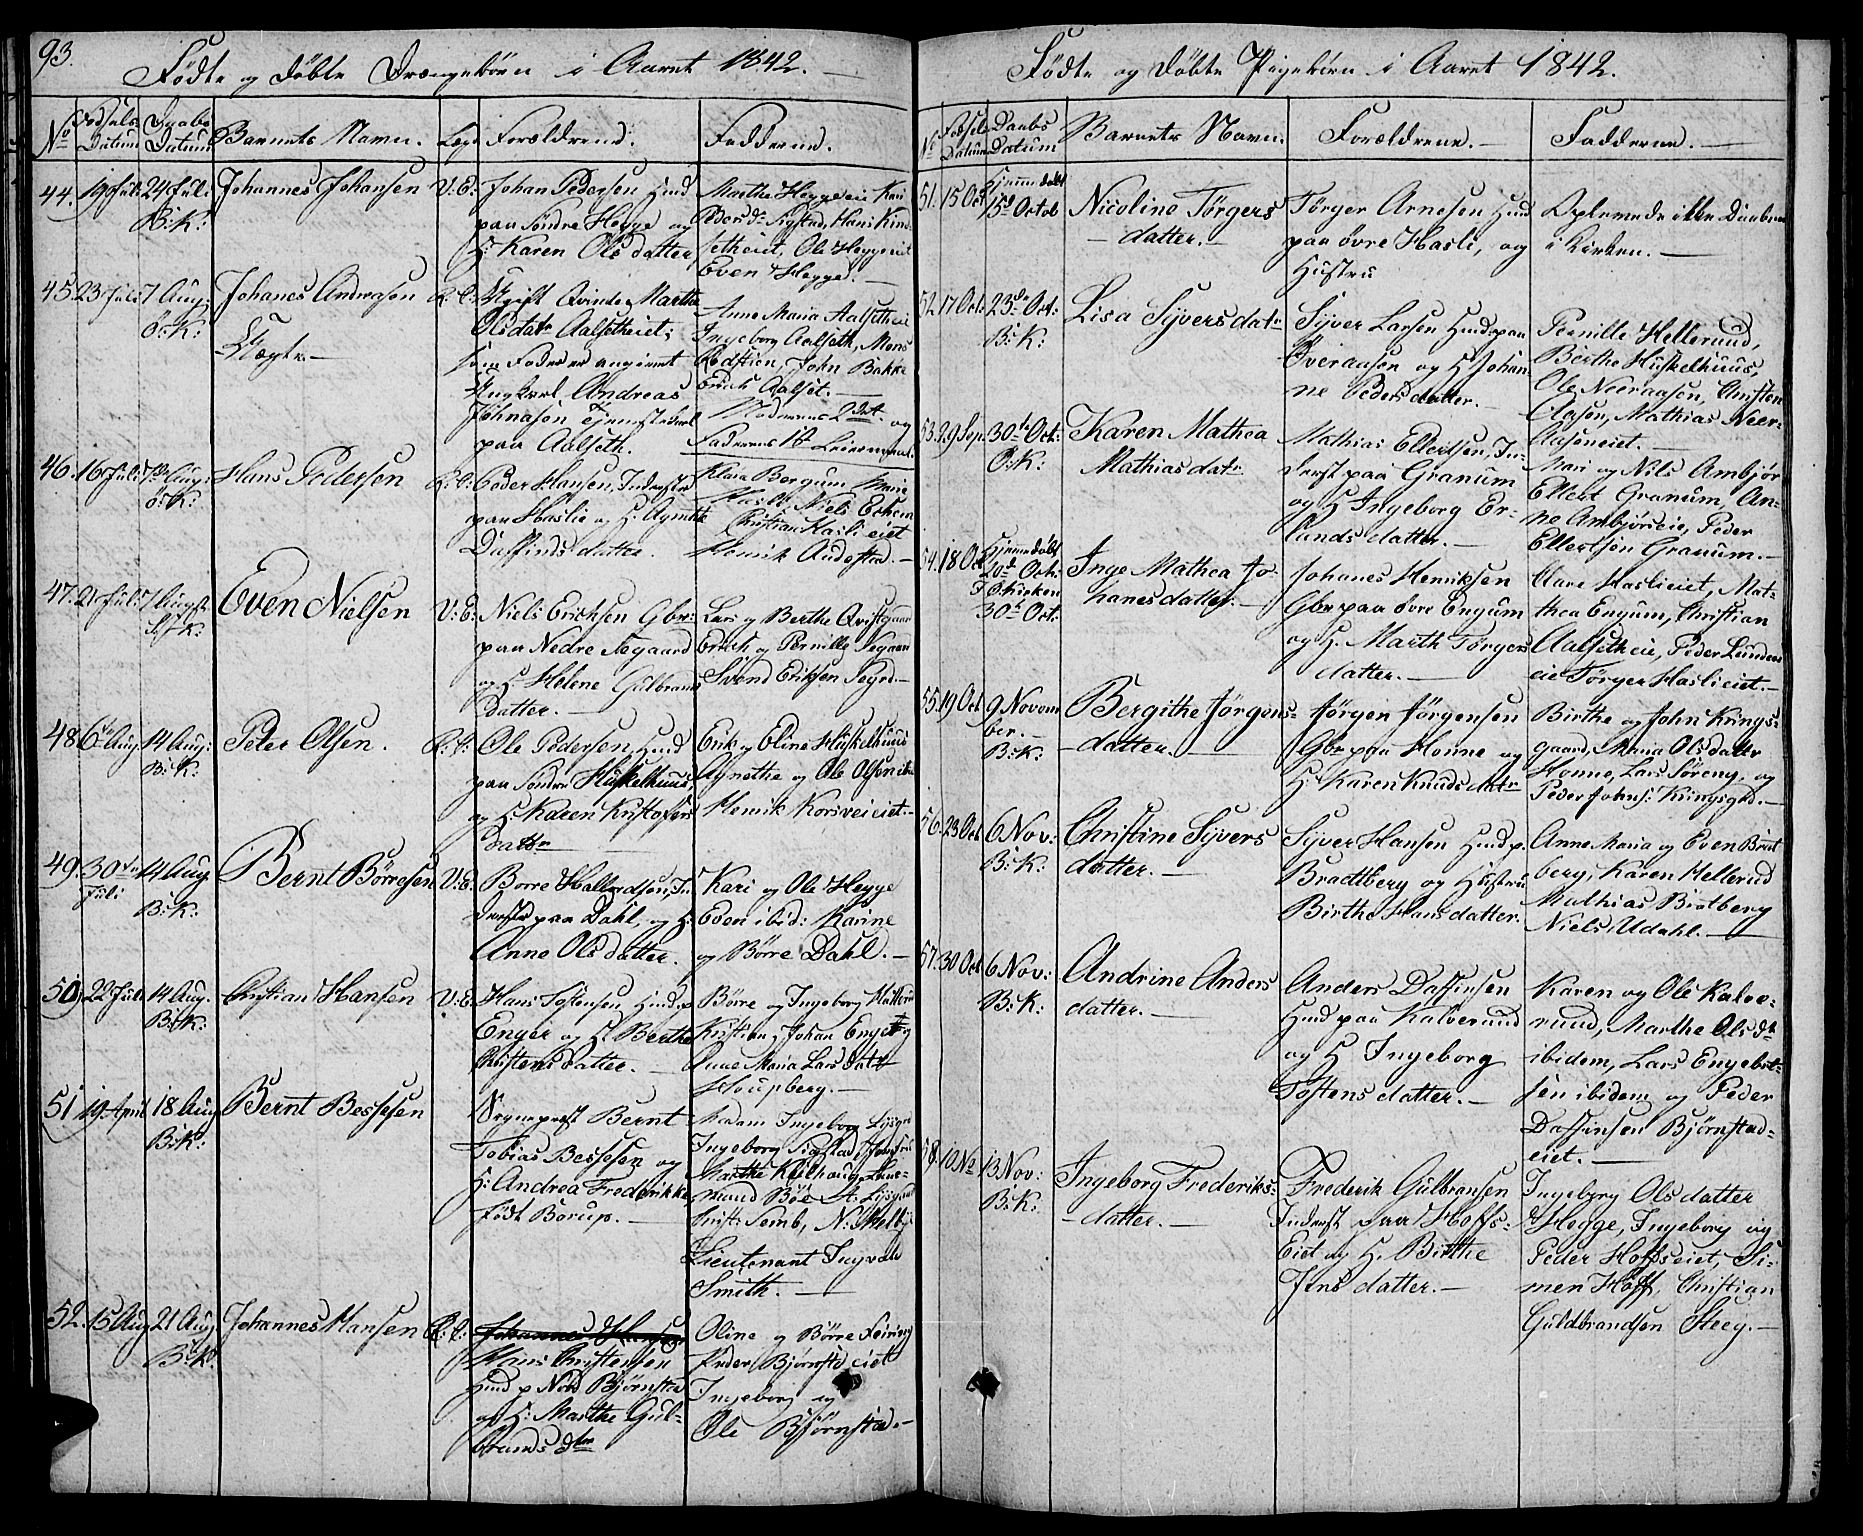 93.
Födte og döbte Drængebörn i Aaret 1842.
No Födsels Datum Daabs Datum Barnets Navn. Forældrene. Fadderne.
44. 19 Juli 24 Juli B: K: Johannes Johansen V: E:
Johan Pedersen Huusd
paa Söndre Hegge og
H: Karen Olsdatter
Marthe Heggeeie Kari
Pedersd: Sigstad, Hans Kind-
setheiet, Ole Heggeeiet
Even Hegge.
45. 23 Juli 7 Aug: Ö: K: Johanes Andreasen
Uægte
Ugift Qvinde Marthe
Olsdatr Aalsetheiet;
som Fader er angivent
Ungkarl Andreas
Johnasön Tjenestekarl
paa Aalseth.
Anne Maria Aalsetheie
Ingeborg Aalseth, Mons
Rodstien, John Bakke
Erich Aalset.
Moderens 2det og
Faderens 1st Leiermaal.
46. 16 Juli 7de Aug: Ö: K: Hans Pedersen
Peder Hansen, Inderste
paa Haslie og H. Agnethe
Daffindsdatter.
Klara Bergum Marie
Hasli, Niels Echern
Christian Haslieiet
Henrik Audestad.
47. 21 Juli 7 Augst K: Even Nielsen V: E:
Niels Ericksen Gbr:
paa Nedre Segaard
og H Helene Gulbrans
datter.
Lars og Berthe Qvistgaard
Erich og Pernille Segaard
Svend Eriksen Segrd
48. 6te Aug 14 Aug: B: K: Peter Olsen.
Ole Pedersen Huusd
paa Söndre Huskelhuus,
og H Karen Kristofers
datter
Erik og Eline Huskelhuus
Agnethe og Ole Olsen ibid
Henrik Korsveieiet.
49. 30te Juli 14 Aug B: K: Bernt Börresen V: E:
Borre Hallvordsen, In
derste paa Dahl, og H:
Anne Olsdatter.
Kari og Ole Hegge
Even ibid: Karine
og Börre Dahl.
50. 22 Juli 14 Aug. B: K: Christian Hansen V: E:
Hans Tostensen, Huusd
Enger og H Berthe
Christensdatter.
Börre og Ingeborg
Kristian og Johan Enge
Anne Maria Larsdatr
Houpberg.
51 19 April 18 Aug B: K: Bernt Bessesen
Sogneprest Bernt
Tobias Bessesen og
H: Andrea Frederikke
födt Borup.
Madam Ingeborg Lysgrd
Ingeborg Sigstad, Jomfru
Marthe Keilhaug, Amt-
mand Böe H: Lysgaard
Christ: Semb, N: Melby
Lieutenant Ingvald
Smith.
52. 15 Aug 21 Aug B: K: Johannes Hansen
Johannes Hansen
Hans Christensen
Huusd p Nord Björnstad
og H: Marthe Gul-
brandsdtr
Oline og Börre Feiring
Peder Björnstdeiet
Ingeborg og
Ole Björnstad
Födte og döbte Pigebörn i Aaret 1842.
No Födsels Datum Daabs Datum Barnets Navn. Forældrene. Fadderne.
51. 15 Oct Hjemmedöbt 15d Octob Nicoline Törgers
datter.
Törger Arnesen Huusd
paa övre Hasli, og
Hustru
Oplevede ikke Daaben
i Kirken.
52. 17 Oct: 23de Oct: B: K: Lisa Syversdatr
Syver Larsen Huusd paa
Överaasen og H Johan-
ne Pedersdatter.
Pernille Hellerud,
Berthe Huskelhuus,
Ole Neeraasen, Christen
Aasen, Mathias Neer-
Aaseneiet.
53. 29 Sep. 30te Oct: Ö: K: Karen Mathea
Mathiasdatr
Mathias Ellertsen, In-
derst paa Granum
og H Ingeborg Er-
landsdatter.
Mari og Nils Ambjör
Ellert Granum, An-
ne Ambjörseie, Peder
Ellertsen Granum.
54. 18 Oct Hjemmedöbt 20d Oct: I Ö Kirken 30te Oct: Inge Mathea Jo-
hanesdatter.
Johanes Henriksen
Gbr paa övre Engum
og H. Marth Törgers
datter.
Clare Haslieiet, Mat-
thea Engum, Christian
Aalsetheie, Peder Lundens
eie Törger Haslieiet.
55. 19 Oct 9 Novem
ber. B: K: Bergithe Jörgens-
datter.
Jörgen Jörgensen
Gbr paa Honne og
H: Karen Knudsdatr
Birthe og John Krings-
gaard, Maria Olsdatter
Honne, Lars Söreng, og
Peder Johns: Kringsgrd.
56. 23 Oct 6 Nov: B: K: Christine Syvers
datter.
Syver Hansen Huusd p.
Bradtberg og Hustru
Birthe Hansdatter.
Anne Maria og Even Brat
berg, Karen Hellerud
Mathias Bratberg
Niels Udahl.
57. 30 Oct 6 Nov: B: K: Andrine Anders
datter.
Anders Daffinsen
Huusd paa Kalverud
og H Ingeborg
Tostensdatter.
Karen og Ole Kalve-
rund, Marthe Olsdtr
ibidem, Lars Engebret-
sen ibidem og Peder
Daffinsen Björnstad-
eiet.
58. 10 No 13 Nov: B: K: Ingeborg Frederiks-
datter.
Frederik Gulbransen
Inderst paa Hoffs-
Eiet og H. Birthe
Jensdatter.
Ingeborg Olsdatter
Hegge, Ingeborg og
Peder Hoffseiet, Si-
men Hoff, Christian
Guldbrandsen Steeg.